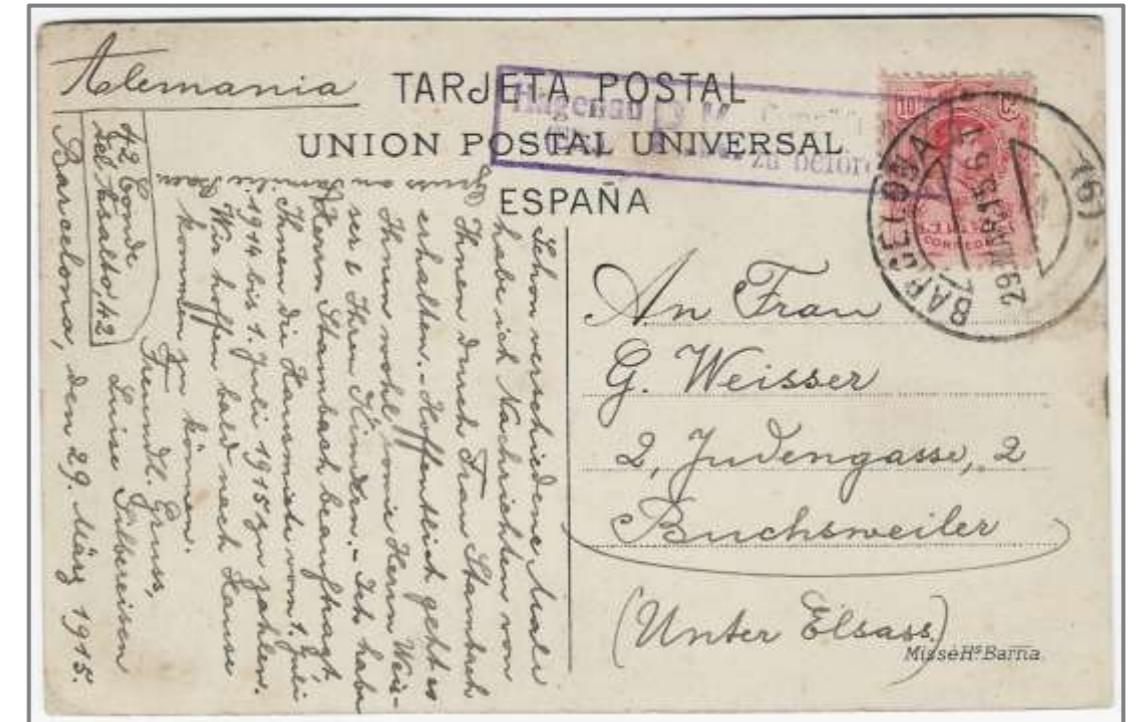 Alemania
TARJETA POSTAL
UNION POSTAL UNIVERSAL
ESPAÑA
Hagenau
zu beförd
10 Cs
CORREOS
BARCELONA
29 MAR 15
(6)
An Frau
G. Weisser
2, Judengasse, 2
Buchsweiler
(Unter Elsass)
Missé Hs Barna.
Schon verschiedene Male
habe ich Nachrichten von
Ihnen durch Frau Stambach
erhalten. - Hoffentlich geht es
Ihnen wohl sowie Herrn Weis-
ser & Ihren Kindern. - Ich habe
Herrn Stambach beauftragt,
Ihnen die Hausmiete vom 1. Juli
1914 bis 1. Juli 1915 zu zahlen.
Wir hoffen bald nach Hause
kommen zu können.
Freundl. Gruss,
Luise Silbereisen
Barcelona, den 29. März 1915.
42 Conde
del Asalto 42
Gruss an Familie